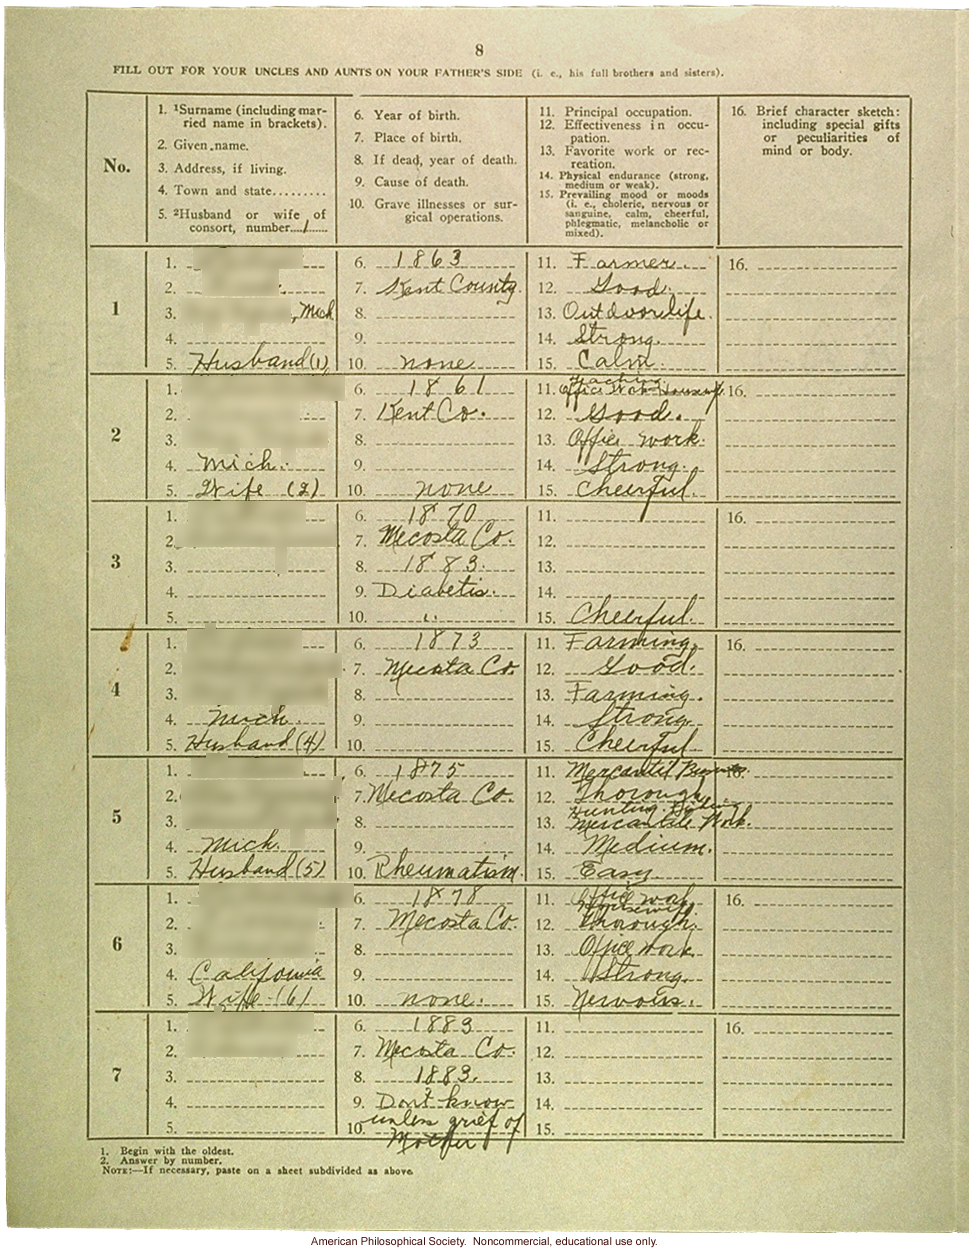 8
FILL OUT FOR YOUR UNCLES AND AUNTS ON YOUR FATHER'S SIDE (i. e., his full brothers and sisters).
No.
1. ¹Surname (including married name in brackets).
2. Given name.
3. Address, if living.
4. Town and state.........
5. ²Husband or wife of consort, number....1......
6. Year of birth.
7. Place of birth.
8. If dead, year of death.
9. Cause of death.
10. Grave illnesses or surgical operations.
11. Principal occupation.
12. Effectiveness in occupation.
13. Favorite work or recreation.
14. Physical endurance (strong, medium or weak).
15. Prevailing mood or moods (i. e., choleric, nervous or sanguine, calm, cheerful, phlegmatic, melancholic or mixed).
16. Brief character sketch: including special gifts or peculiarities of mind or body.
1
1.
2.
3. , Mich
4.
5. Husband (1)
6. 1863
7. Kent County.
8.
9.
10. none
11. Farmer.
12. Good.
13. Outdoor life.
14. Strong.
15. Calm.
16.
2
1.
2.
3.
4. Mich.
5. Wife (2)
6. 1861
7. Kent Co.
8.
9.
10. none
11. Teaching
Office Work
12. Good.
13. Office work.
14. Strong.
15. Cheerful.
16.
3
1.
2.
3.
4.
5.
6. 1870
7. Mecosta Co.
8. 1883.
9. Diabetis.
10. "
11.
12.
13.
14.
15. Cheerful.
16.
4
1.
2.
3.
4. Mich.
5. Husband (4)
6. 1873
7. Mecosta Co.
8.
9.
10.
11. Farming.
12. Good.
13. Farming.
14. Strong.
15. Cheerful
16.
5
1.
2.
3.
4. Mich.
5. Husband (5)
6. 1875
7. Mecosta Co.
8.
9.
10. Rheumatism.
11. Mercantil Business.
12. Thorough.
Hunting.
13. Mercantile Work.
14. Medium.
15. Easy
16.
6
1.
2.
3.
4. California
5. Wife (6)
6. 1878
7. Mecosta Co.
8.
9.
10. none.
11. Office work
Housewife
12. Thorough.
13. Office work
14. Strong
15. Nervous.
16.
7
1.
2.
3.
4.
5.
6. 1883
7. Mecosta Co.
8. 1883.
9. Don't know
10. unless grief of
Mother
11.
12.
13.
14.
15.
16.
1. Begin with the oldest.
2. Answer by number.
NOTE:—If necessary, paste on a sheet subdivided as above.
American Philosophical Society. Noncommercial, educational use only.